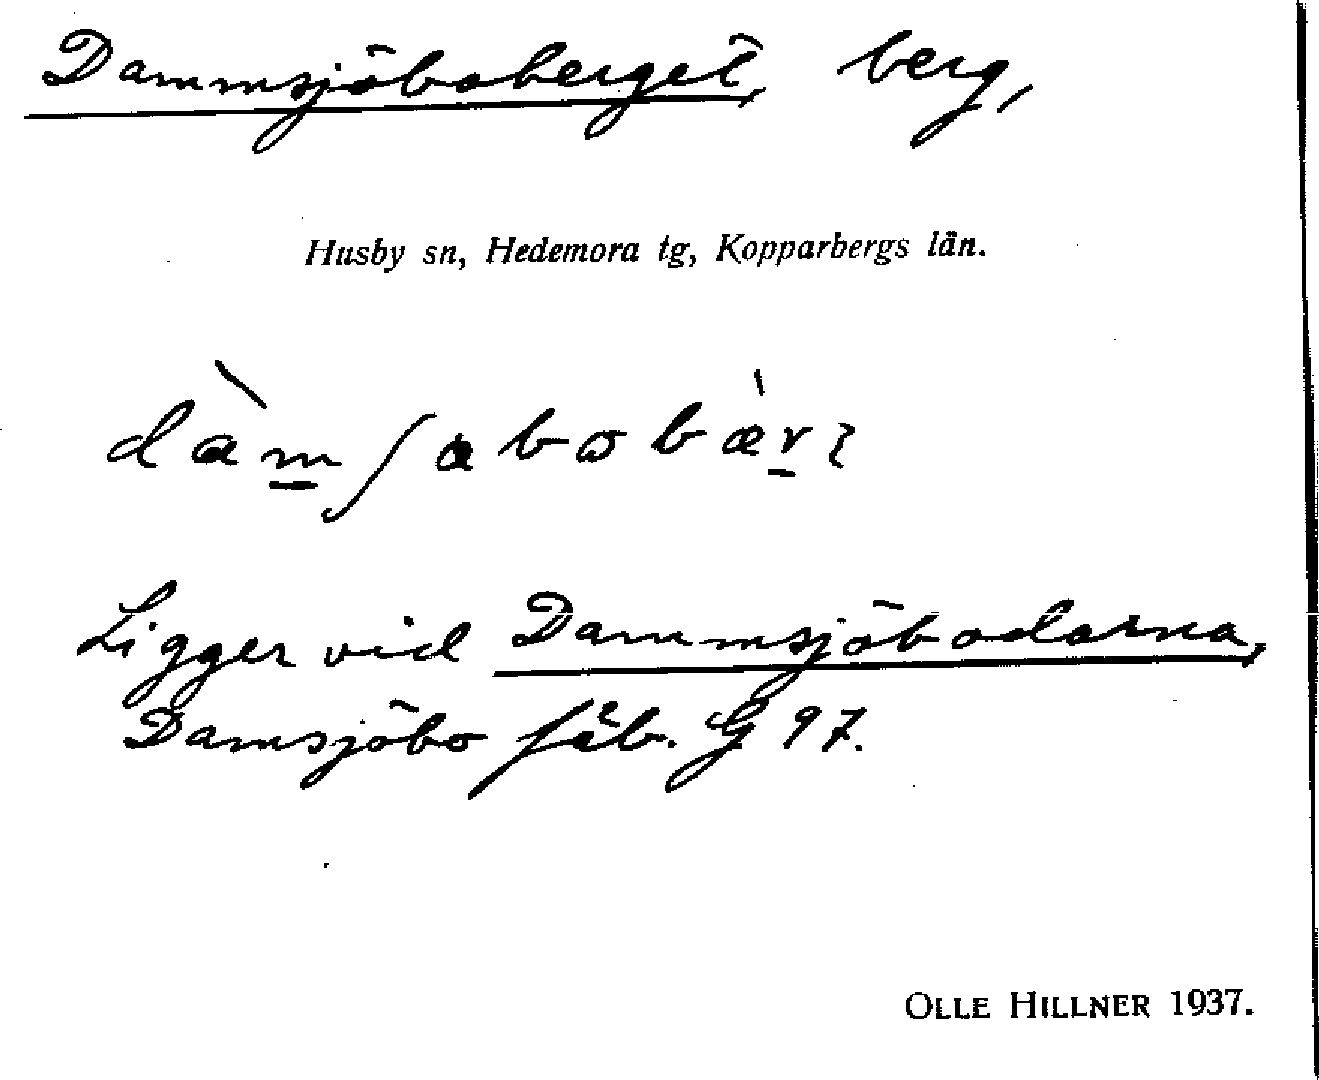 Dammsjöboberget, berg,
Husby sn, Hedemora tg, Kopparbergs län.
dàm̲ʃabobæ̀r̲ɩ
Ligger vid Dammsjöbodarna,
Damsjöbo fäb. G 97.
OLLE HILLNER 1937.